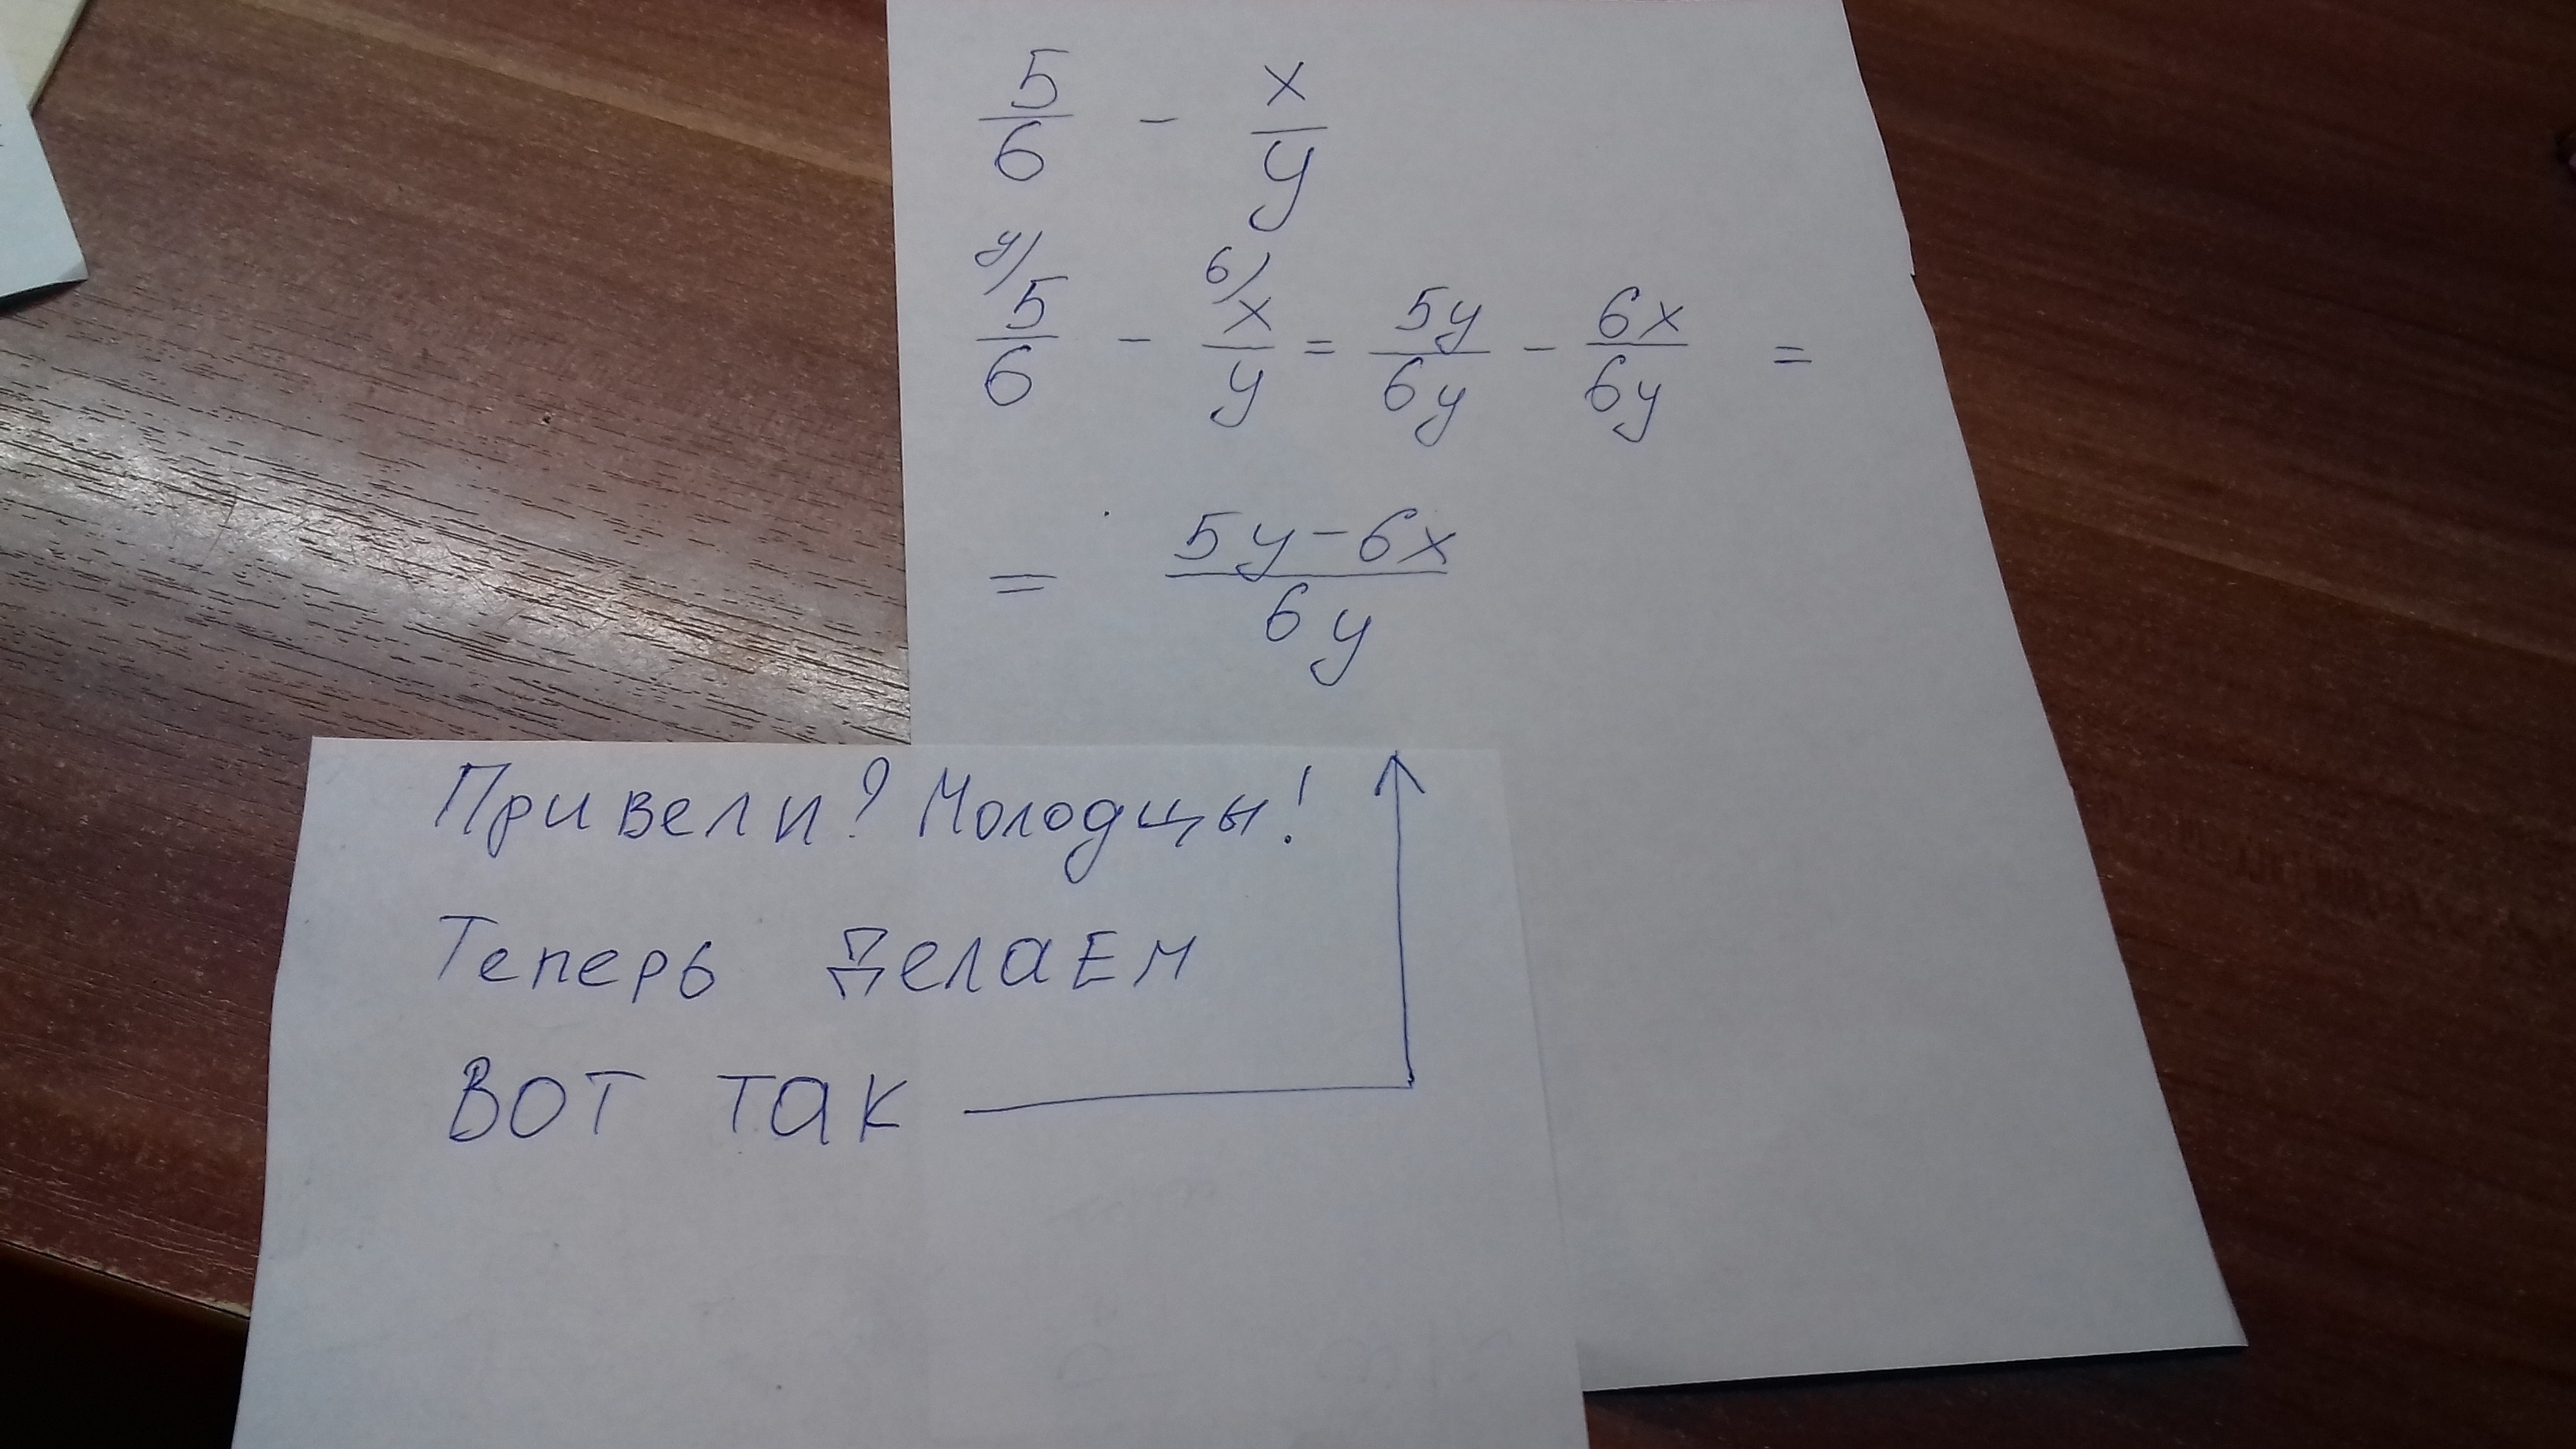 5/6 - x/y
y) 5/6 - 6) x/y = 5y/6y - 6x/6y =
= (5y-6x)/6y
Привели? Молодцы!
Теперь делаем
вот так